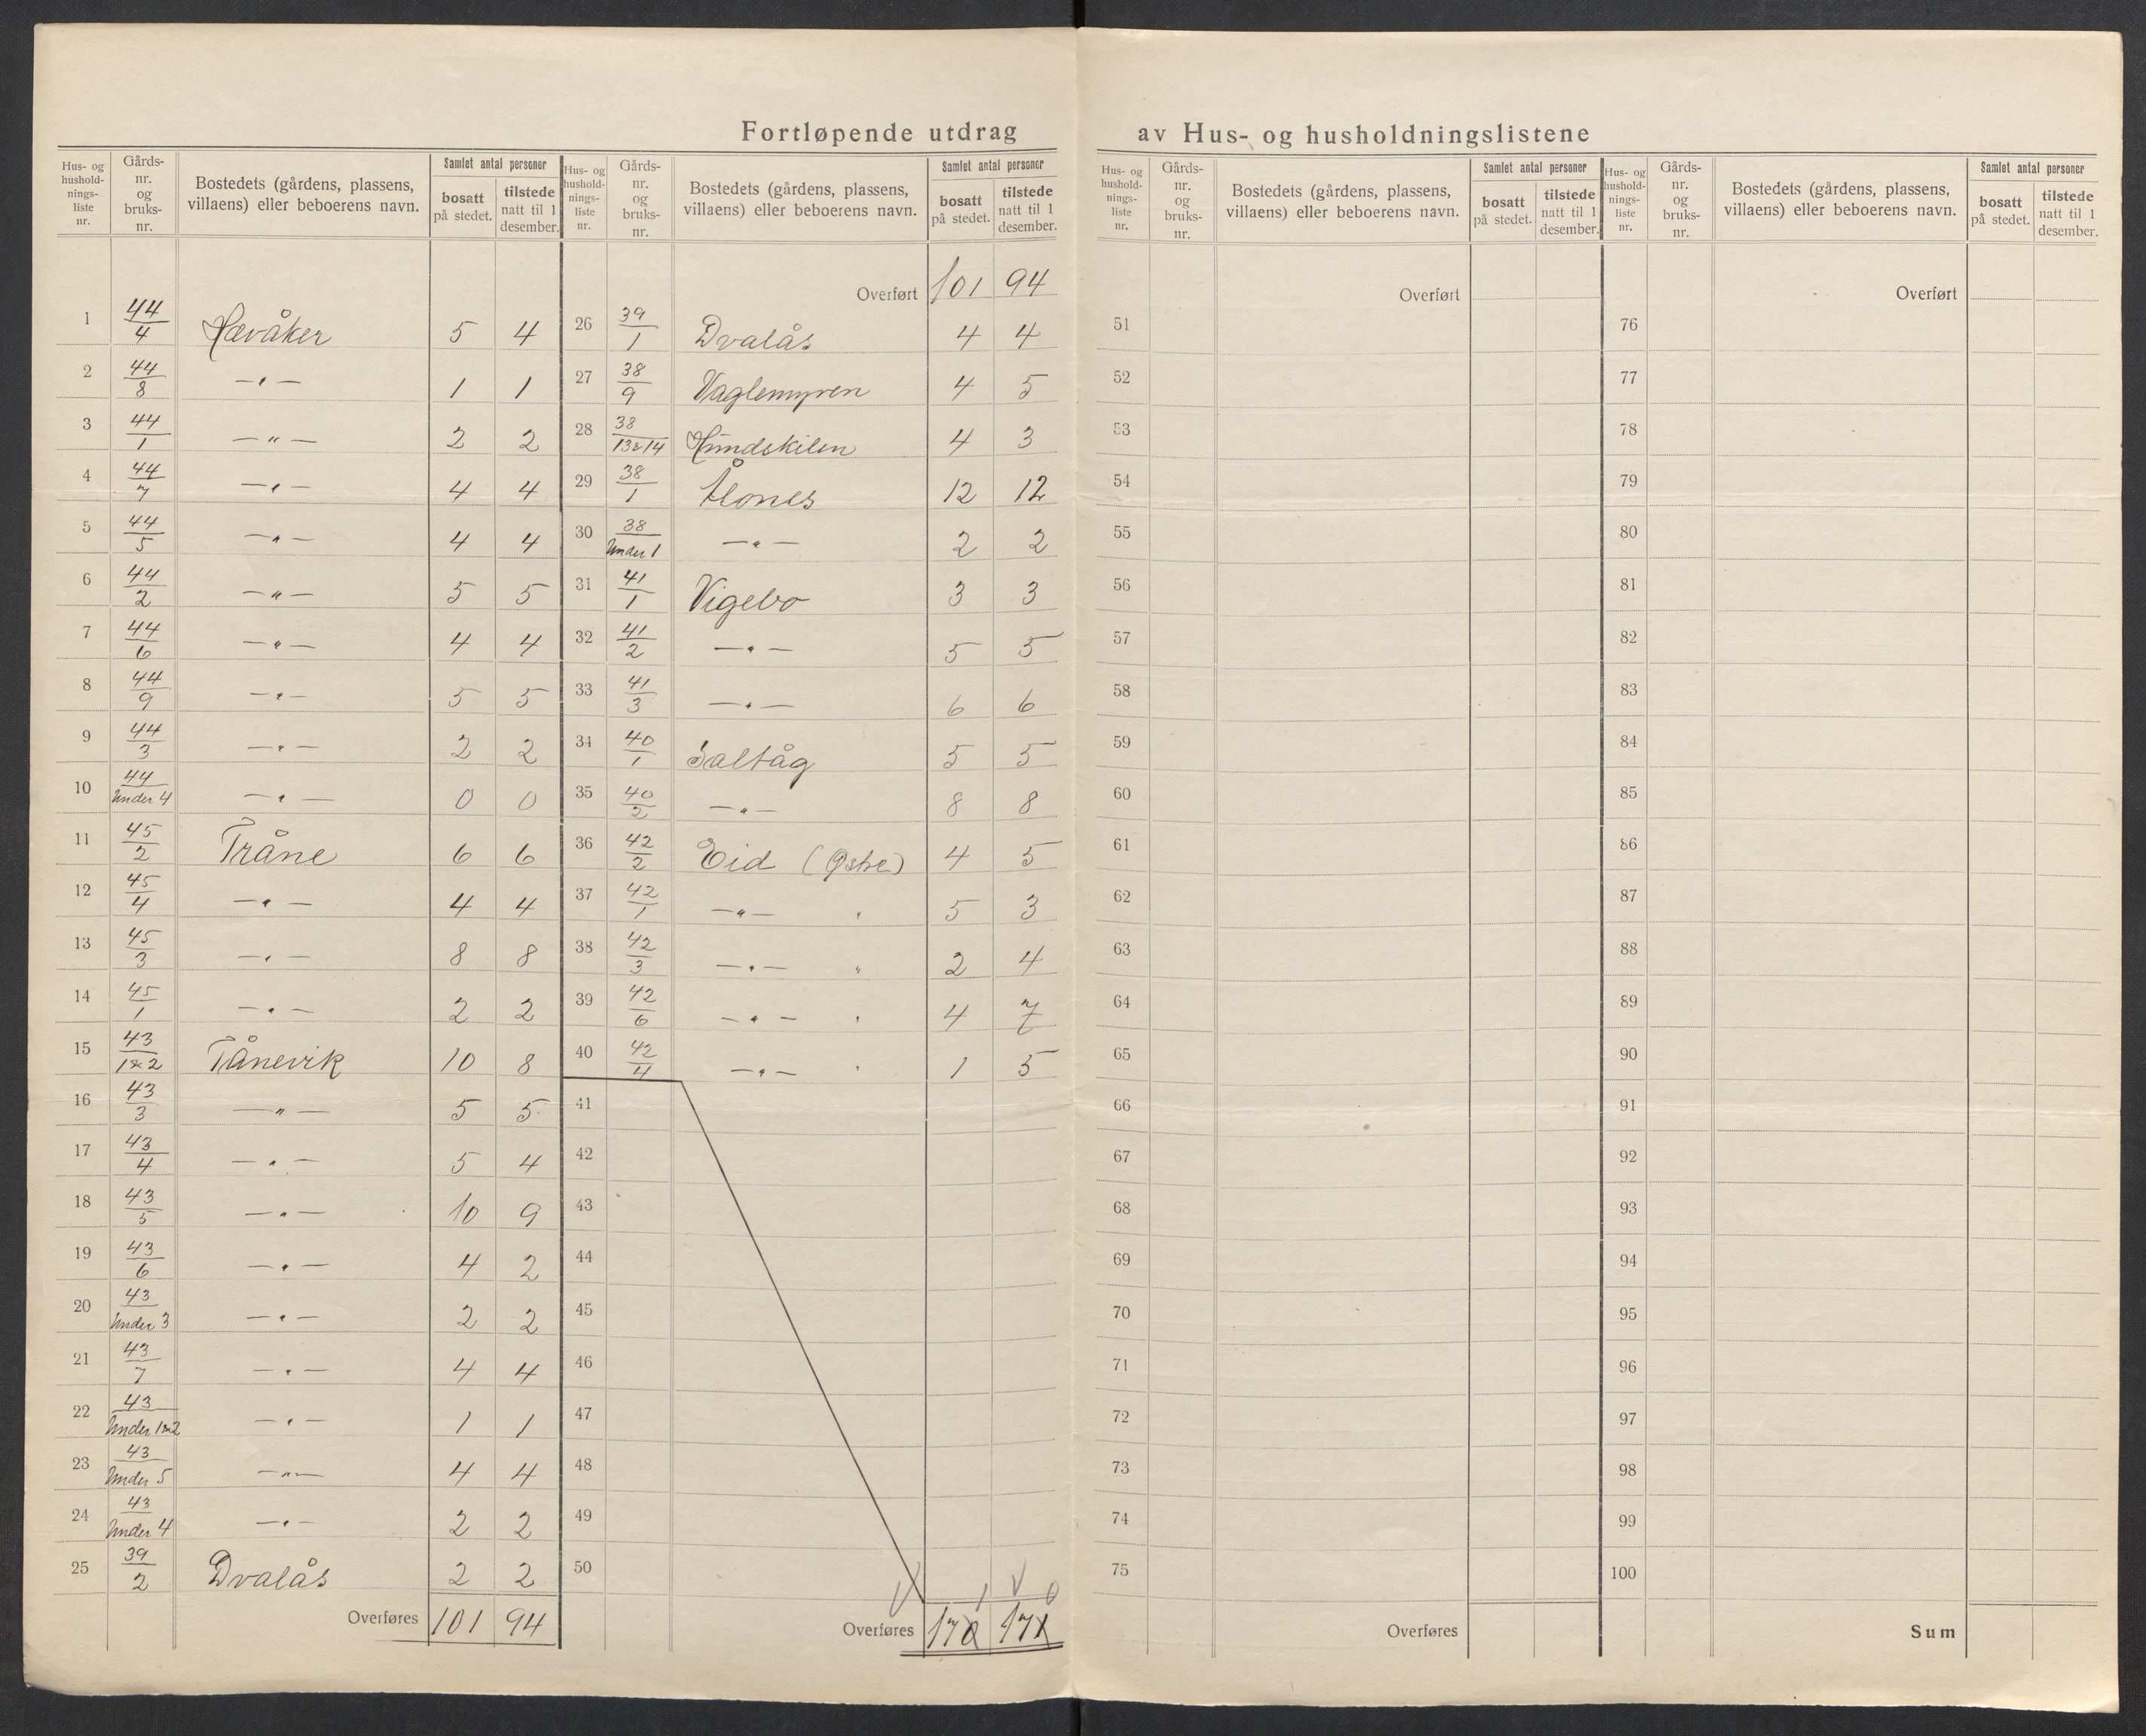 Fortløpende utdrag av Hus- og husholdningslistene
Hus- og husholdningsliste nr. | Gårds-nr. og bruks-nr. | Bostedets (gårdens, plassens, villaens) eller beboerens navn. | Samlet antal personer: bosatt på stedet. | tilstede natt til 1 desember.
1 44/4 Hævåker 5 4
2 44/8 —„— 1 1
3 44/1 —„— 2 2
4 44/7 —„— 4 4
5 44/5 —„— 4 4
6 44/2 —„— 5 5
7 44/6 —„— 4 4
8 44/9 —„— 5 5
9 44/3 —„— 2 2
10 44/Under 4 —„— 0 0
11 45/2 Tråne 6 6
12 45/4 —„— 4 4
13 45/3 —„— 8 8
14 45/1 —„— 2 2
15 43/1&2 Tånevik 10 8
16 43/3 —„— 5 5
17 43/4 —„— 5 4
18 43/5 —„— 10 9
19 43/6 —„— 4 2
20 43/Under 3 —„— 2 2
21 43/7 —„— 4 4
22 43/Under 1&2 —„— 1 1
23 43/Under 5 —„— 4 4
24 43/Under 4 —„— 2 2
25 39/2 Dvalås 2 2
Overføres 101 94
Hus- og husholdningsliste nr. | Gårds-nr. og bruks-nr. | Bostedets (gårdens, plassens, villaens) eller beboerens navn. | Samlet antal personer: bosatt på stedet. | tilstede natt til 1 desember.
Overført 101 94
26 39/1 Dvalås 4 4
27 38/9 Vaglemyren 4 5
28 38/13&14 Hundskilen 4 3
29 38/1 Ålones 12 12
30 38/Under 1 —„— 2 2
31 41/1 Vigebo 3 3
32 41/2 —„— 5 5
33 41/3 —„— 6 6
34 40/1 Saltåg 5 5
35 40/2 —„— 8 8
36 42/2 Eid (Østre) 4 5
37 42/1 —„— „ 5 3
38 42/3 —„— „ 2 4
39 42/6 —„— „ 4 7
40 42/4 —„— „ 1 5
41
42
43
44
45
46
47
48
49
50
1 0
Overføres 170 171
Hus- og husholdningsliste nr. | Gårds-nr. og bruks-nr. | Bostedets (gårdens, plassens, villaens) eller beboerens navn. | Samlet antal personer: bosatt på stedet. | tilstede natt til 1 desember.
Overført
51
52
53
54
55
56
57
58
59
60
61
62
63
64
65
66
67
68
69
70
71
72
73
74
75
Overføres
Hus- og husholdningsliste nr. | Gårds-nr. og bruks-nr. | Bostedets (gårdens, plassens, villaens) eller beboerens navn. | Samlet antal personer: bosatt på stedet. | tilstede natt til 1 desember.
Overført
76
77
78
79
80
81
82
83
84
85
86
87
88
89
90
91
92
93
94
95
96
97
98
99
100
Sum